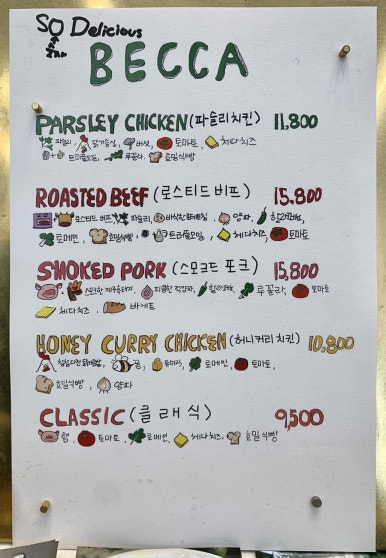 SO Delicious
BECCA
PARSLEY CHICKEN (파슬리치킨) 11,800
파슬리, 닭가슴살, 버섯, 토마토, 체다치즈
트러플오일, 루꼴라, 호밀식빵
ROASTED BEEF (로스티드 비프) 15,800
로스티드 비프, 파슬리, 양파, 할라피뇨,
로메인, 호밀식빵, 트러플오일, 체다치즈, 토마토
SMOKED PORK (스모크드 포크) 15,800
할라피뇨, 루꼴라, 토마토
체다치즈, 바게트
HONEY CURRY CHICKEN (허니커리 치킨) 10,800
꿀, 로메인, 토마토,
호밀식빵, 양파
CLASSIC (클래식) 9,500
햄, 토마토, 로메인, 체다치즈, 호밀식빵